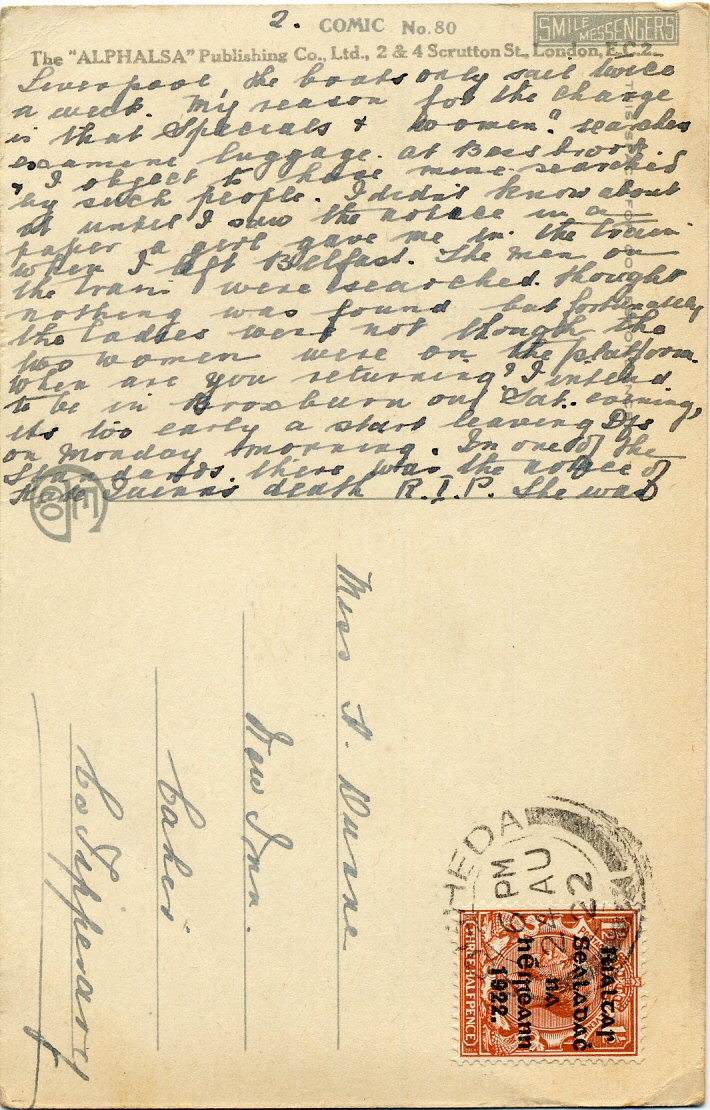 2. COMIC No. 80
SMILE MESSENGERS
The "ALPHALSA" Publishing Co., Ltd., 2 & 4 Scrutton St., London, E.C.2.
Liverpool, the boats only sail twice
a week. My reason for the change
is that Specials & "women" searches
examine luggage at Bessbrook
& I object to have mine searched
by such people. I didn't know about
it until I saw the notice in a
paper a girl gave me in the train
when I left Belfast. The men on
the train were searched though
nothing was found but fortunately
the ladies were not though the
two women were on the platform.
When are you returning? I intend
to be in Broxburn on Sat. evening,
its too early a start leaving
on Monday morning. In one of the
Standards there was the notice of
death R.I.P. She was
Miss A. Dunne
New Inn.
Cahir
Co Tipperary
HEDA
6 PM
24 AU
22
Rialtar
Sealadaċ
na
hÉireann
1922.
THREE HALFPENCE